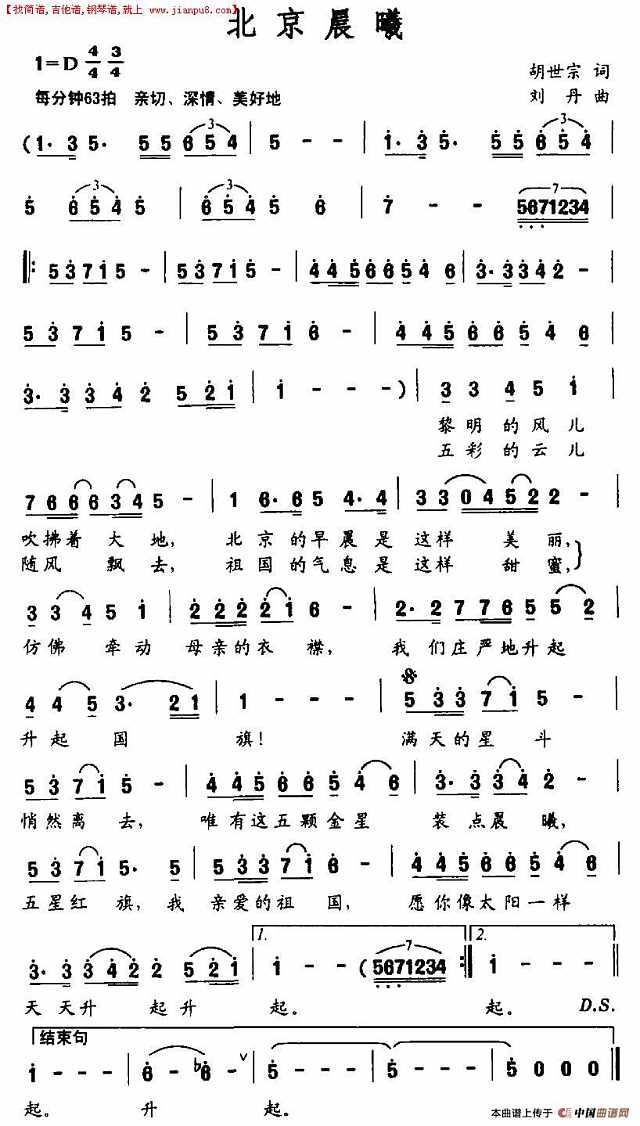 【找简谱,吉他谱,钢琴谱,就上 www.jianpu8.com】
北京晨曦
1=D 4/4 3/4
胡世宗 词
每分钟63拍 亲切、深情、美好地
刘丹 曲
(1· 3 5· 5 5 6 5 4 | 5 - - | 1· 3 5· 5 5 6 5 4 |
5 6 5 4 | 6 5 4 5 6 | 7 - - 5671234 |
‖: 5 3 7 1 5 - | 5 3 7 1 5 - | 4 4 5 6 6 5 4 6 | 3· 3 3 4 2 - |
5 3 7 1 5 - | 5 3 7 1 6 - | 4 4 5 6 6 5 4 6 |
3· 3 3 4 2 5 2 1 | 1 - - ) | 3 3 4 5 1 |
黎明的风儿
五彩的云儿
7 6 6 6 3 4 5 - | 1 6· 6 5 4· 4 | 3 3 0 4 5 2 2 - |
吹拂着 大地, 北京的早晨是这样 美丽,
随风 飘去, 祖国的气息是这样 甜蜜,
3 3 4 5 1 | 2 2 2 2 1 6 - | 2· 2 7 7 6 5 5 2 |
仿佛 牵动 母亲的衣 襟, 我们庄严地升起
4 4 5 3· 2 1 | 1 - - - | 5 3 3 7 1 5 - |
升起 国 旗! 满天的星 斗
5 3 7 1 5 - | 4 4 5 6 6 5 4 6 | 3· 3 3 4 2 - |
悄然离 去, 唯有这五颗金星 装点晨 曦,
5 3 7 1 5· 5 | 5 3 3 7 1 6 - | 4 4 5 6 6 5 4 6 |
五星红 旗,我 亲爱的祖 国, 愿你像太阳一样
3· 3 3 4 2 2 5 2 1 | 1. 1 - - (5671234 :‖ 2. 1 - - |
天 天升 起升 起。 起。 D.S.
结束句
1 - - | 6 - ♭6 ∨ | 5 - - | 5 - - | 5 0 0 0 ‖
起。 升 起。
本曲谱上传于 中国曲谱网